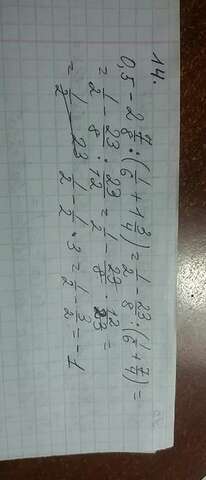 14.
0,5 - 2 7/8 : (1/6 + 1 3/4) = 1/2 - 23/8 : (1/6 + 7/4) =
= 1/2 - 23/8 : 23/12 = 1/2 - 23/8 · 12/23 =
= 1/2 - 1/2 · 3 = 1/2 - 3/2 = -1